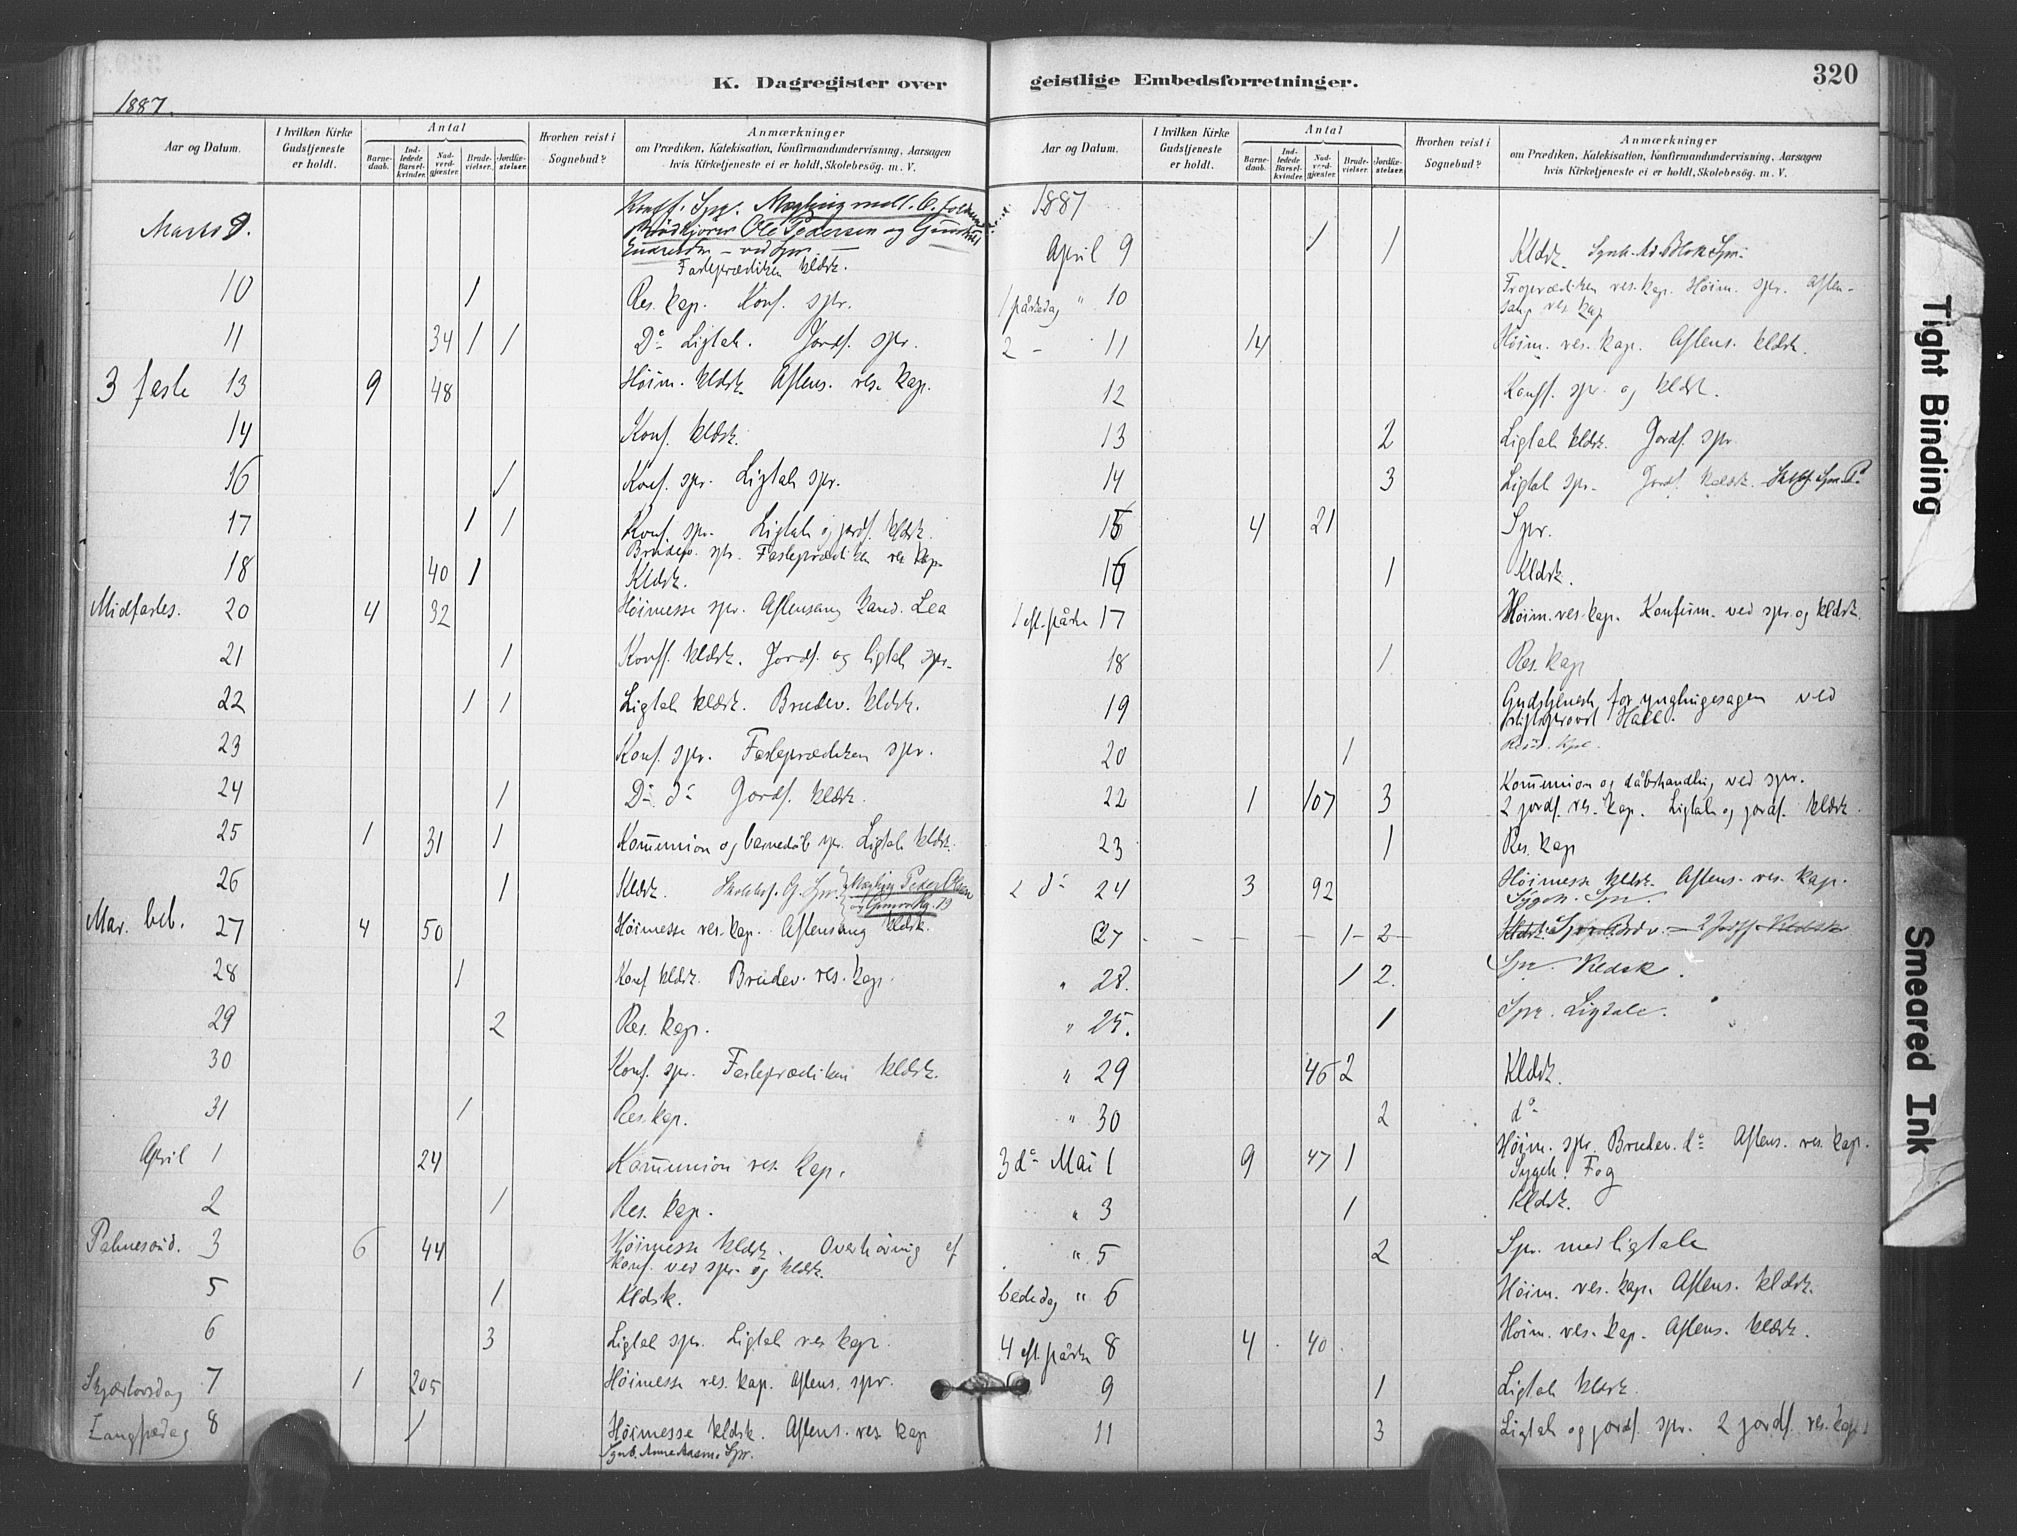 K. Dagregister over
1887.
Aar og Datum.
I hvilken Kirke Gudstjeneste er holdt.
Antal
Barnedaab.
Indledede Barselkvinder.
Nadverdgjæster.
Brudevielser.
Jordfæstelser.
Hvorhen reist i Sognebud?
Anmærkninger
om Prædiken, Katekisation, Konfirmandundervisning, Aarsagen
hvis Kirketjeneste ei er holdt, Skolebesøg. m. V.
Marts 9. Konff. Spr. Mægling mell.
Ole Pedersen og
ved Spr.
Fasteprædiken klokk.
10 1 Res. kap. Konf. spr.
11 34 1 1 Do Ligtale. Jordf. spr.
3 faste 13 9 48 Høim. klokk. Aftens. res. kap.
14 Konf. klokk.
16 1 Konf. spr. Ligtale spr.
17 1 1 Konf. spr. Ligtale og jordf. klokk.
Brudev. spr. Fasteprædiken res. kap.
18 40 1 Klokk.
Midfastes. 20 4 32 Høimesse spr. Aftensang kand. Lea
21 1 Konff. klokk. Jordf. og ligtale spr.
22 1 1 Ligtale klokk. Brudev. klokk.
23 Konf. spr. Fasteprædiken spr.
24 1 Do do Jordf. klokk.
25 1 31 1 Kommunion og barnedåb spr. Ligtale klokk.
26 1 Klokk. Spr. Mægling Peder Olsen
Mar. beb. 27 4 50 Høimesse res. kap. Aftensang klokk.
28 1 Konf klokk. Brudev. res. kap.
29 2 Res. kap.
30 Konf. spr. Fasteprædiken klokk.
31 1 Res. kap.
April 1 24 Kommunion res. kap.
2 1 Res. kap.
Palmesønd. 3 6 44 Høimesse klokk. Overhøring af
Konf. ved spr. og klokk.
5 1 Klokk.
6 3 Ligtal spr. Ligtal res. kap.
Skjærtorsdag 7 1 205 Høimesse res. kap. Aftens. spr.
Langfredag 8 1 Høimesse klokk. Aftens. res. kap
Spr.
geistlige Embedsforretninger.
320
Aar og Datum.
I hvilken Kirke Gudstjeneste er holdt.
Antal
Barnedaab.
Indledede Barselkvinder.
Nadvergjæster.
Brudevielser.
Jordfæstelser.
Hvorhen reist i Sognebud?
Anmærkninger
om Prædiken, Katekisation, Konfirmandundervisning, Aarsagen
hvis Kirketjeneste ei er holdt, Skolebesøg. m. V.
1887
April 9 1 1 Klokk. Spr.
1 påskedag " 10 Froprædiken res. kap. Høim. spr. Aften-
sang res. kap
2 - 11 14 Høim. res. kap. Aftens. klokk.
12 Konff. spr. og klokk.
13 2 Ligtale klokk. Jordf. spr.
14 3 Ligtal spr. Jordf. klokk.
15 4 21 Spr.
16 1 Klokk.
1 eft. påske 17 Høim. res. kap. Konfirm. ved spr. og klokk.
18 1 Res. kap
19 Gudstjeneste for ynglingesagen ved
Hall.
20 1 Resid. Kpl.
22 1 107 3 Kommunion og dåbshandling ved spr.
2 jordf. res. kap. Ligtale og jordf. klokk.
23 1 Res. kap
2 do 24 3 92 Høimesse klokk. Aftens. res. kap.
Sygeb. Spr.
27 - - - - 1 - 2 -
" 28. 1 2. Spr. Klokk.
" 25. 1 Spr. Ligtale.
" 29 46 2 Klokk.
" 30 2 do
3 do Mai 1 9 47 1 Høim. spr. Brudev. do Aftens. res. kap.
Sygeb. Fog
" 3 1 Klokk.
" 5 2 Spr. med ligtale
bededag " 6 Høim. res. kap. Aftens. klokk.
4 eft. påske 8 4 40 Høim. res. kap. Aftens. klokk.
9 1 Ligtale klokk.
11 3 Ligtale og jordf. spr. 2 jordf. res. kap.
Tight Binding
Smeared Ink